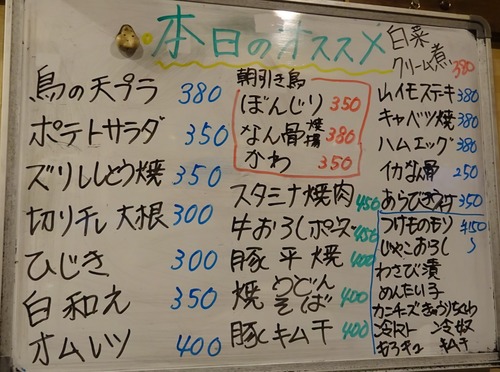 本日のオススメ
鳥の天プラ 380
ポテトサラダ 350
ズリししとう焼 350
切り干し大根 300
ひじき 300
白和え 350
オムレツ 400
朝引き鳥
ぼんじり 350
なん骨 焼 揚 380
かわ 350
スタミナ焼肉 450
牛おろしポン酢 450
豚平焼 400
焼うどん そば 400
豚キムチ 400
白菜
クリーム煮 380
山イモステーキ 380
キャベツ焼 380
ハムエッグ 380
イカなん骨 250
あらびき 350
つけものもり 150〜
じゃこおろし
わさび漬
めんたい子
カニチーズ きゅうりちくわ
冷トマト 冷奴
もろキュー キムチ